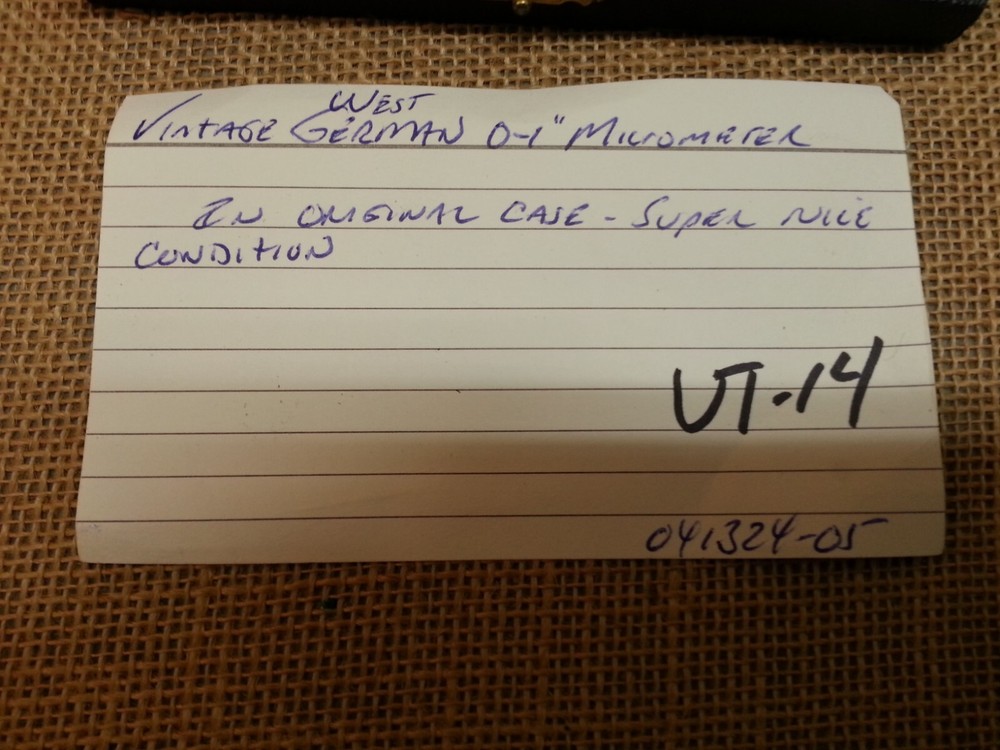 VINTAGE WEST GERMAN 0-1" MICROMETER
IN ORIGINAL CASE - SUPER NICE
CONDITION
VT-14
041324-05